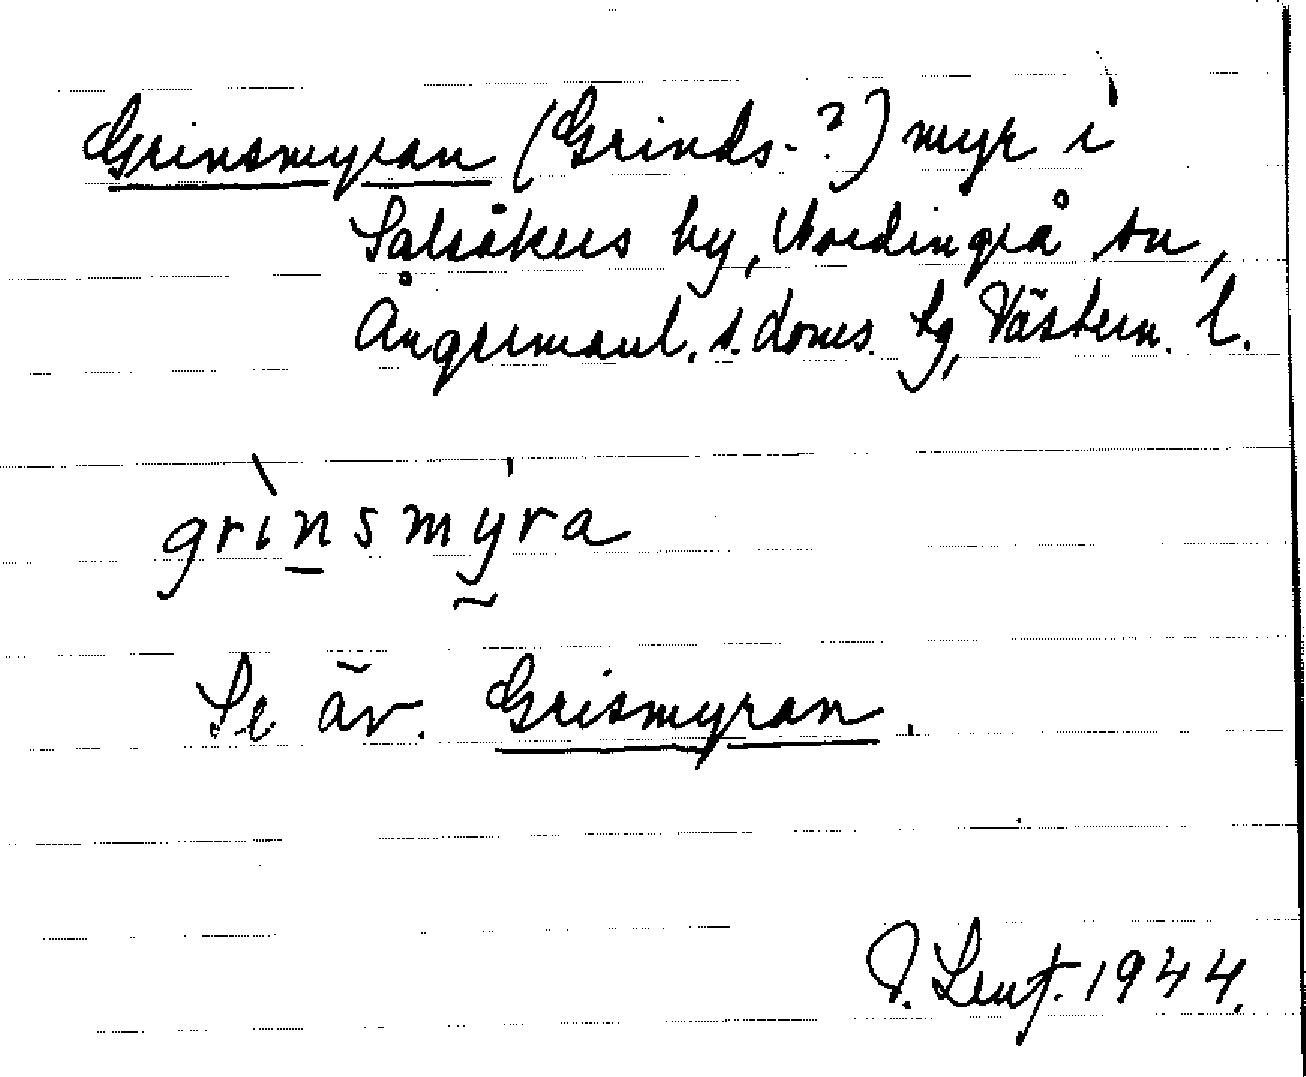 Grinsmyran (Grinds-?) myr i
Salsåkers by, Nordingrå sn,
Ångermanl. s. doms. tg, Västern. l.
grìnsmy̰ra
Se äv. Grismyran.
1944.